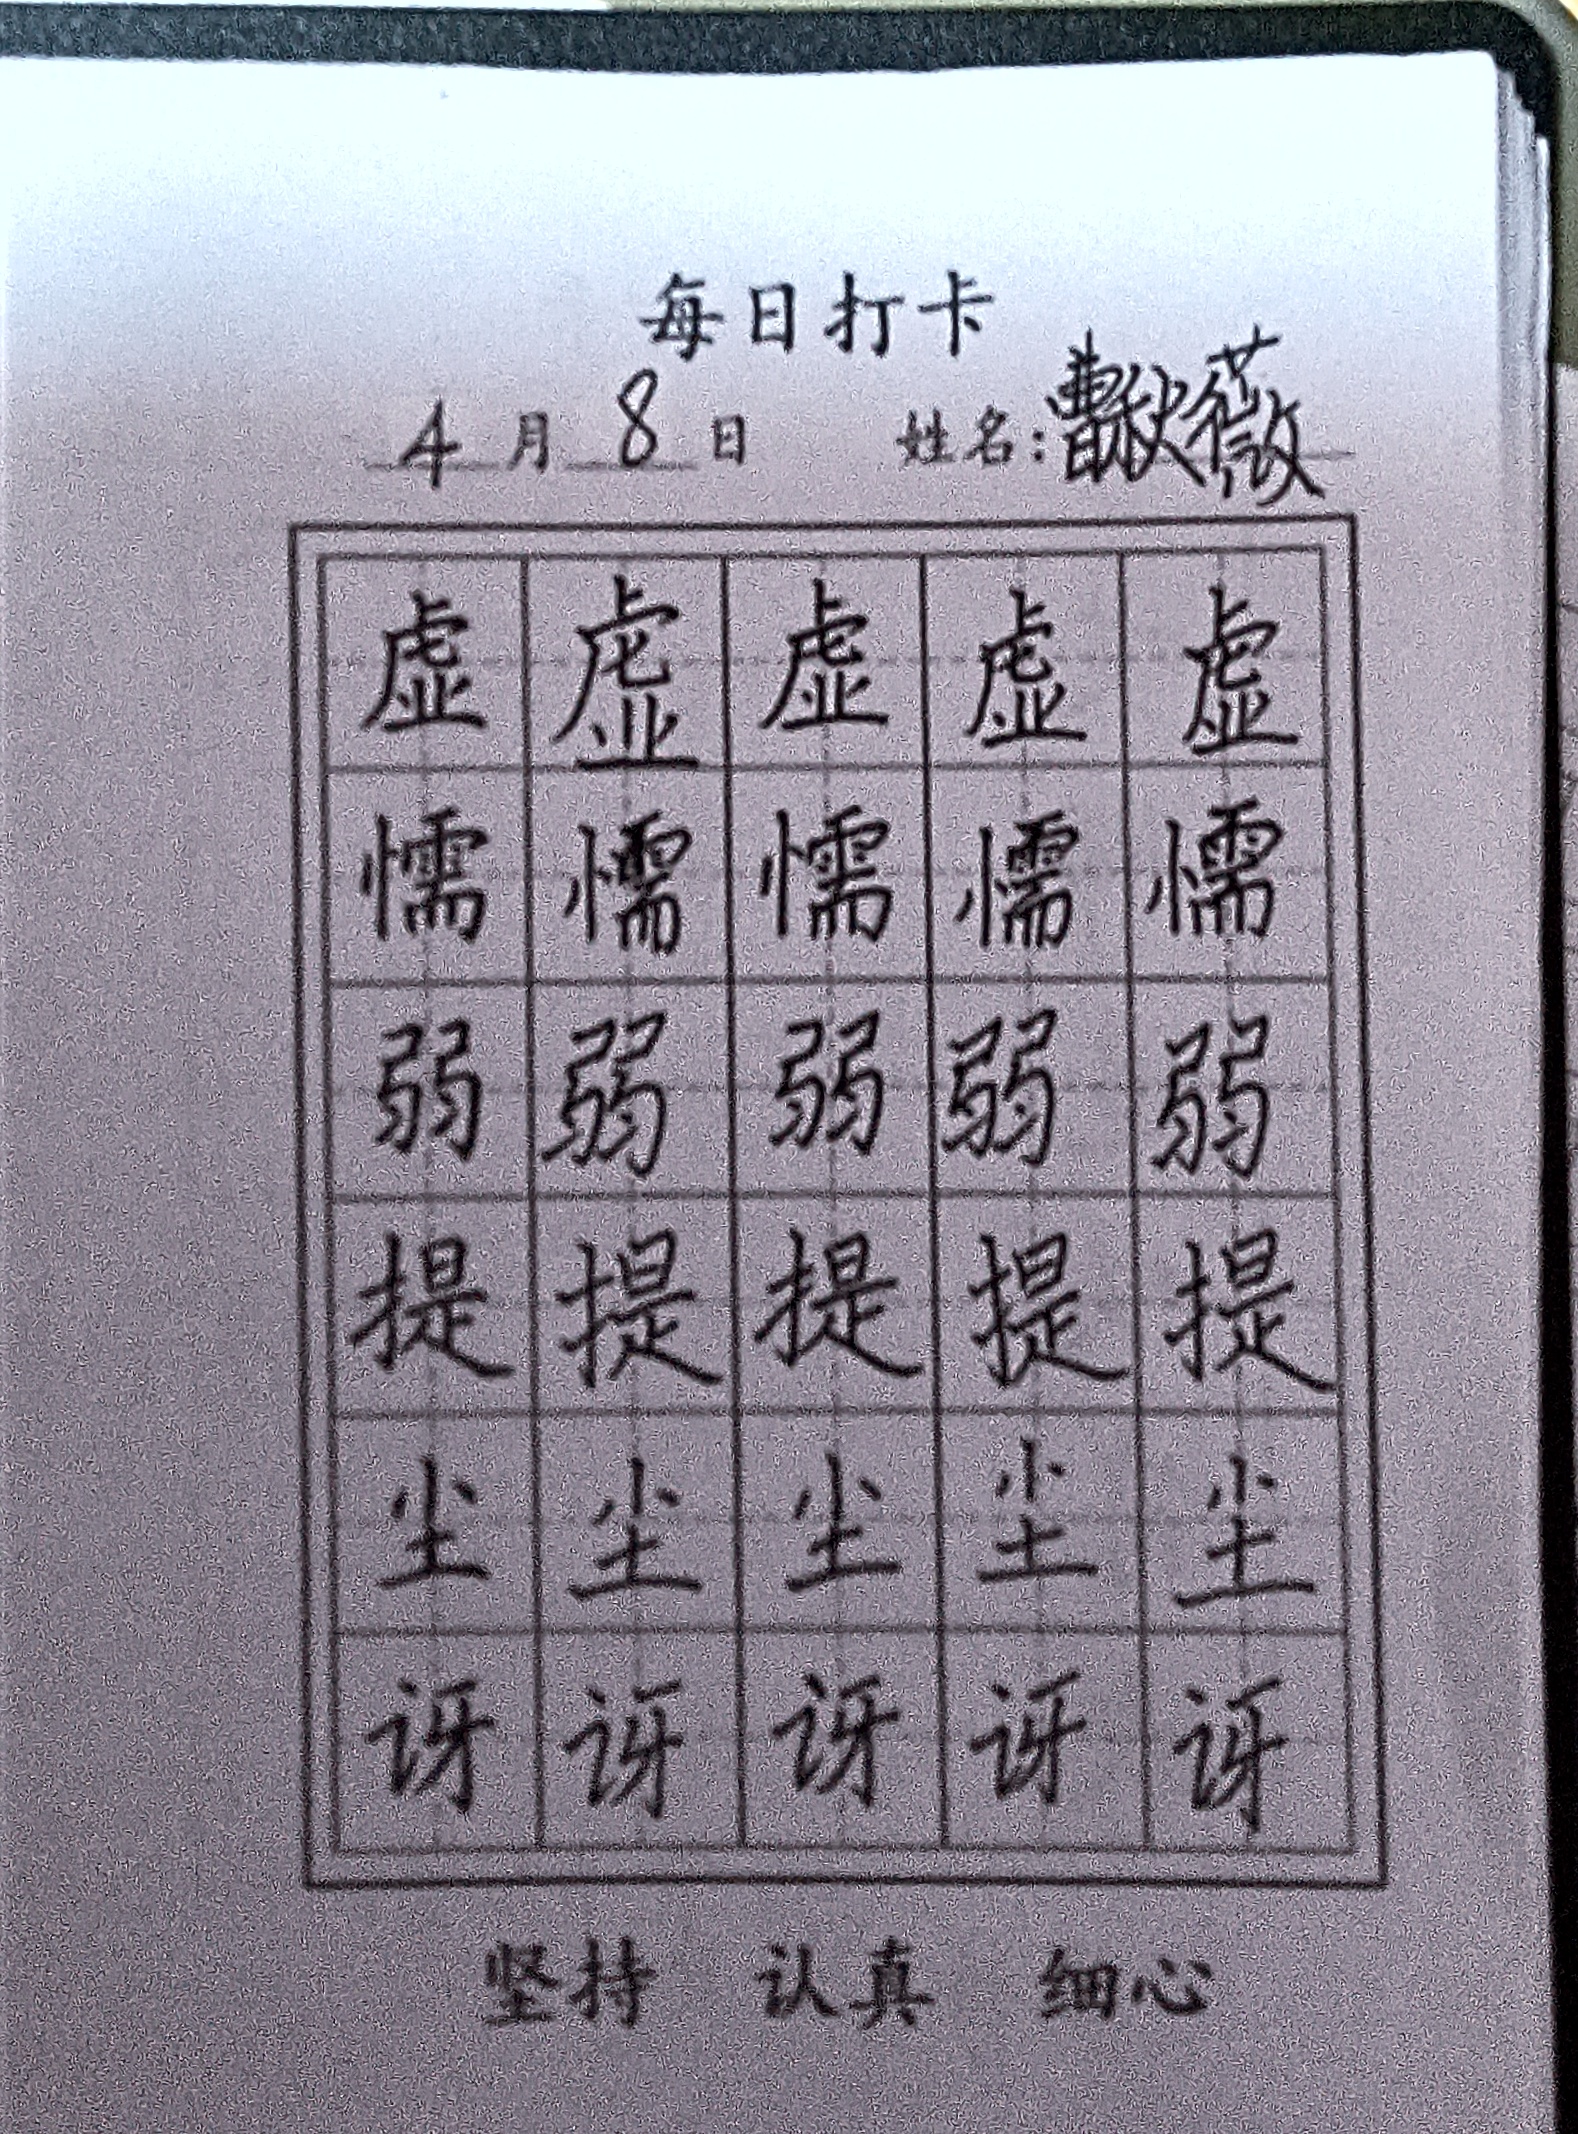 每日打卡
4月8日 姓名:薇
虚虚虚虚虚
懦懦懦懦懦
弱弱弱弱弱
提提提提提
尘尘尘尘尘
讶讶讶讶讶
坚持 认真 细心